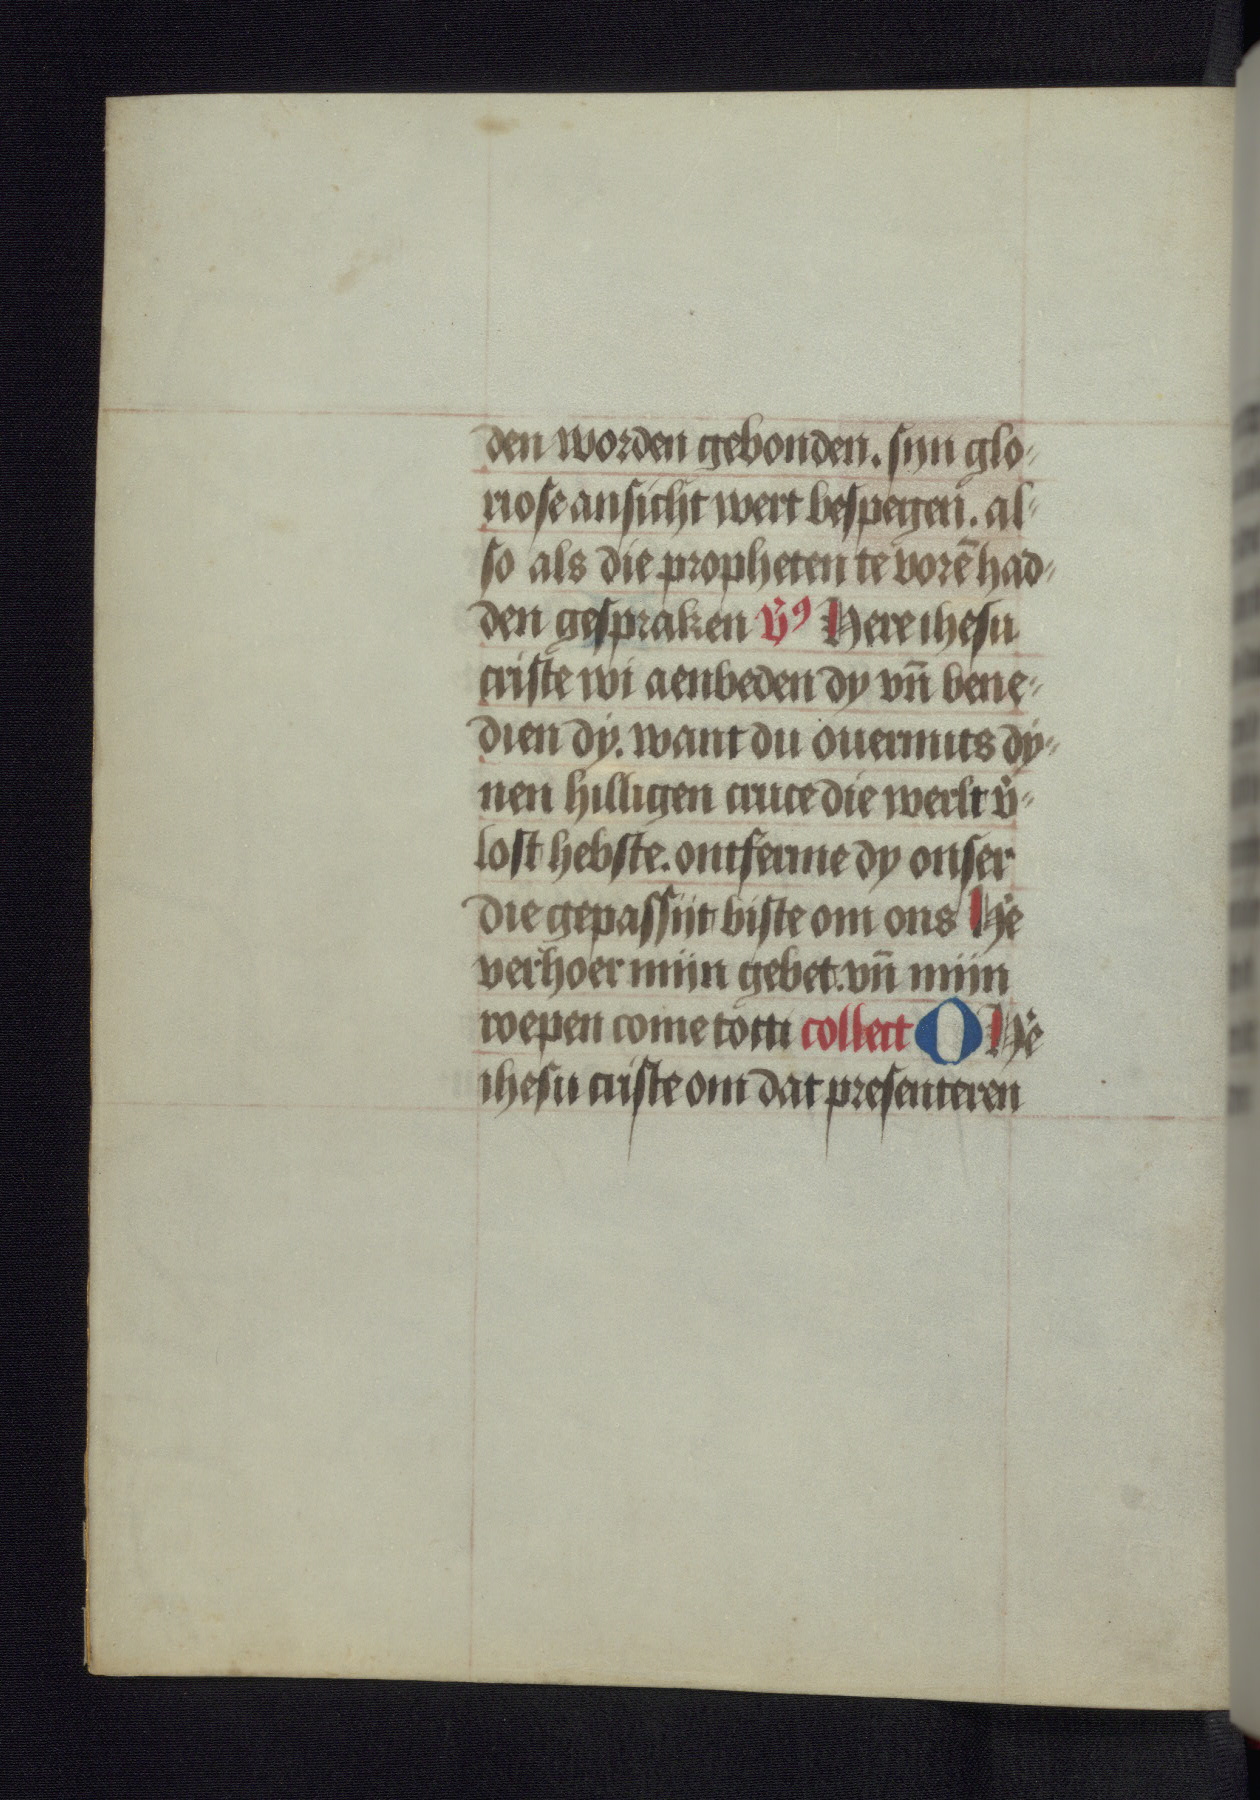 den worden gebonden. syn glo-
riose ansicht wert bespegen. al-
so als die propheten te vorē had-
den gespraken v̄ꝰ Here ihesu
criste wi aenbeden dy vn̄ bene-
dien dy. want du ouermits dy-
nen hilligen cruce die werlt v̓-
lost hebste. ontferme dy onser
die gepassijt biste om ons He̓
verhoer mijn gebet. vn̄ mijn
roepen come totti collect O He̓
ihesu criste om dat presenteren